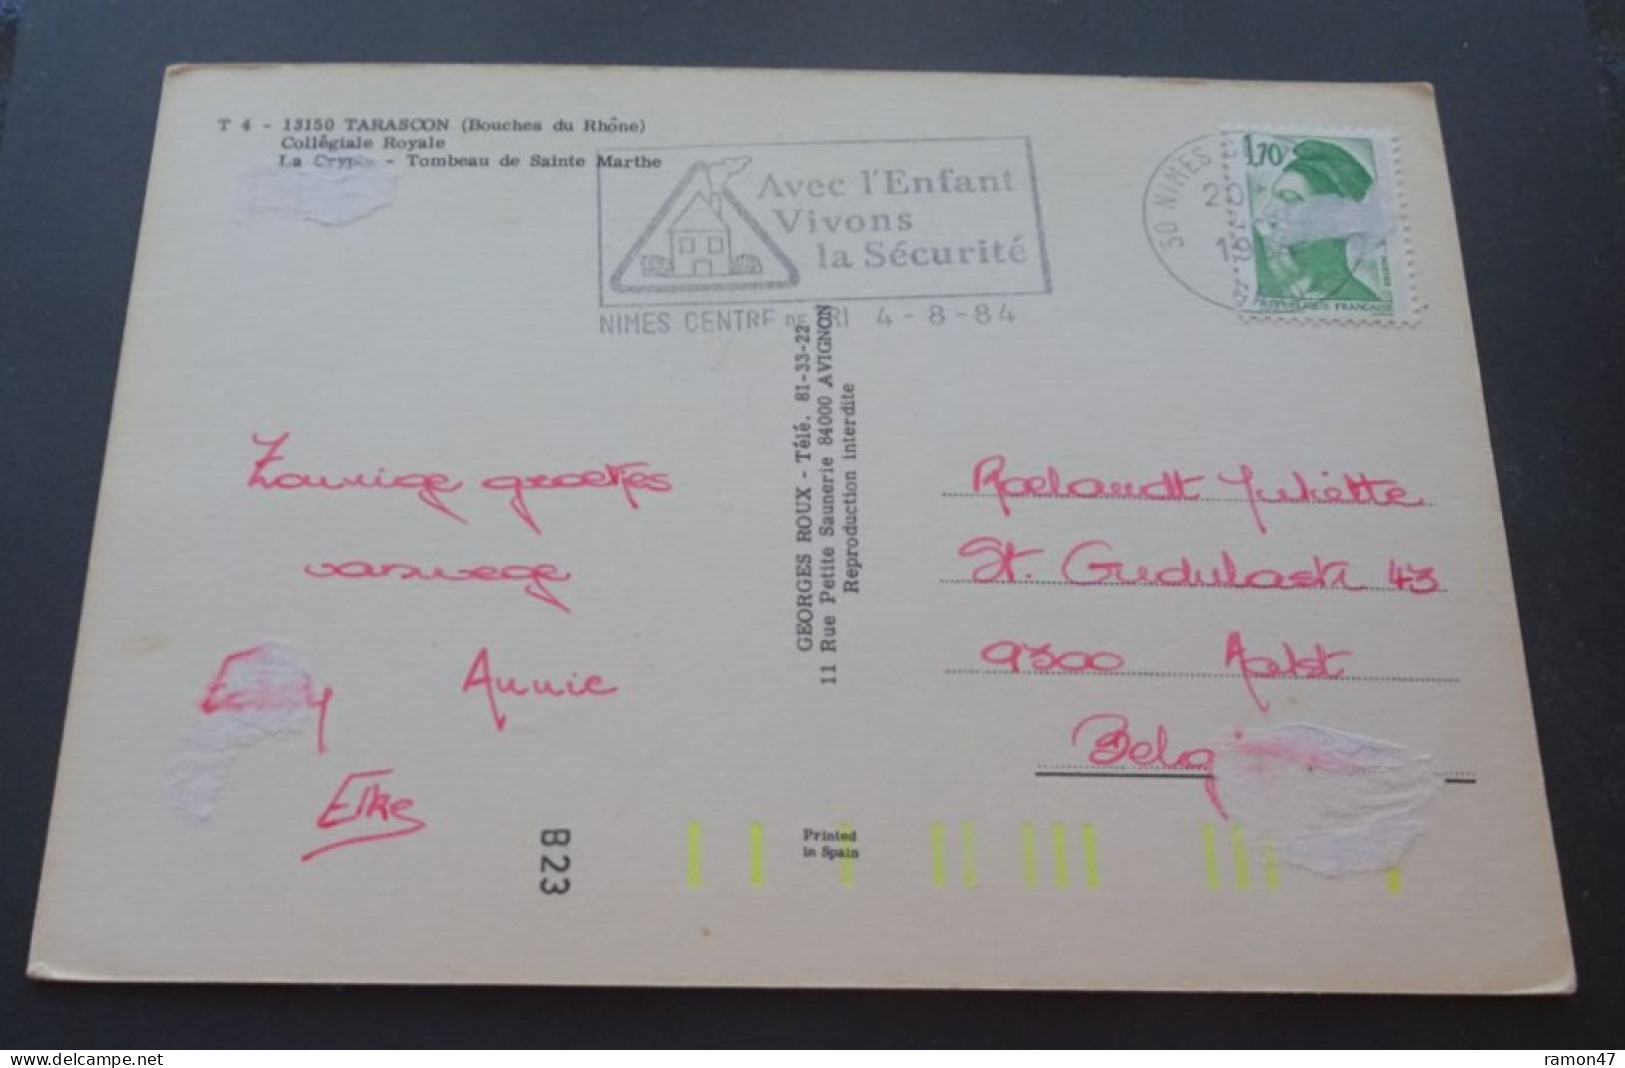 T 4 - 13150 TARASCON (Bouches du Rhône)
Collégiale Royale
La Crypte - Tombeau de Sainte Marthe
Avec l'Enfant
Vivons
la Sécurité
NIMES CENTRE DE TRI 4-8-84
30 NIMES
1,70
REPUBLIQUE FRANÇAISE
GEORGES ROUX - Télé. 81-33-22
11 Rue Petite Saunerie 84000 AVIGNON
Reproduction interdite
Zonnige groetjes
vanwege
Eddy Annie
Elke
Roelandt Juliette
St. Gudulastr 43
9300 Aalst
Belg
B23
Printed
in Spain
delcampe.net
ramon47